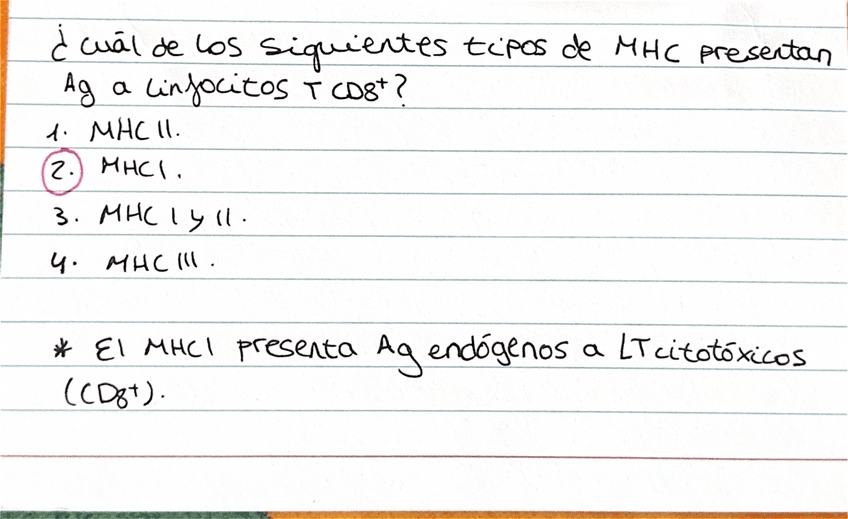 ¿Cuál de los siguientes tipos de MHC presentan
Ag a linfocitos T CD8+?
1. MHC II.
2. MHC I.
3. MHC I y II.
4. MHC III.
* El MHC I presenta Ag endógenos a LT citotóxicos
(CD8+).